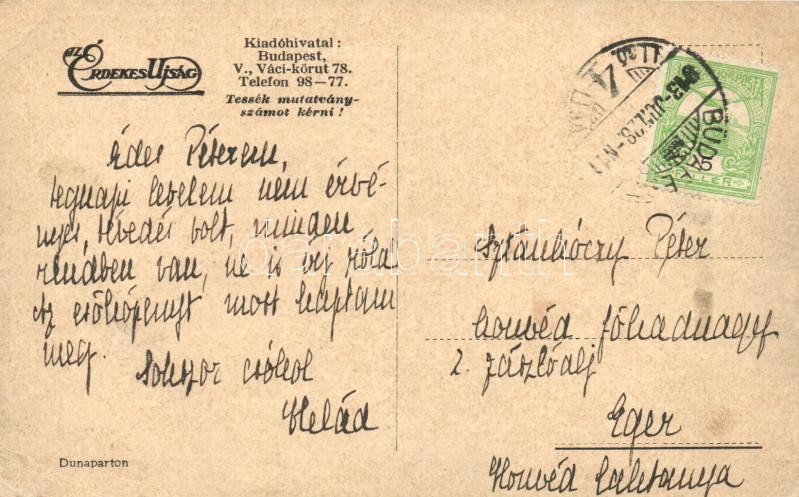 Az ÉRDEKES UJSÁG
Kiadóhivatal:
Budapest,
V., Váci-körut 78.
Telefon 98—77.
Tessék mutatvány-
számot kérni!
Édes Péterem,
tegnapi levelem nem érvé-
nyes, tévedés volt, minden
rendben van, ne is írj róla
Az esőköpenyt most kaptam
meg.
Sokszor csókol
Helád
Dunaparton
BUDAPEST
913
5
FILLÉR
Sztankóczy Péter
honvéd főhadnagy
2. zászlóalj
Eger
Honvéd laktanya
darabanth